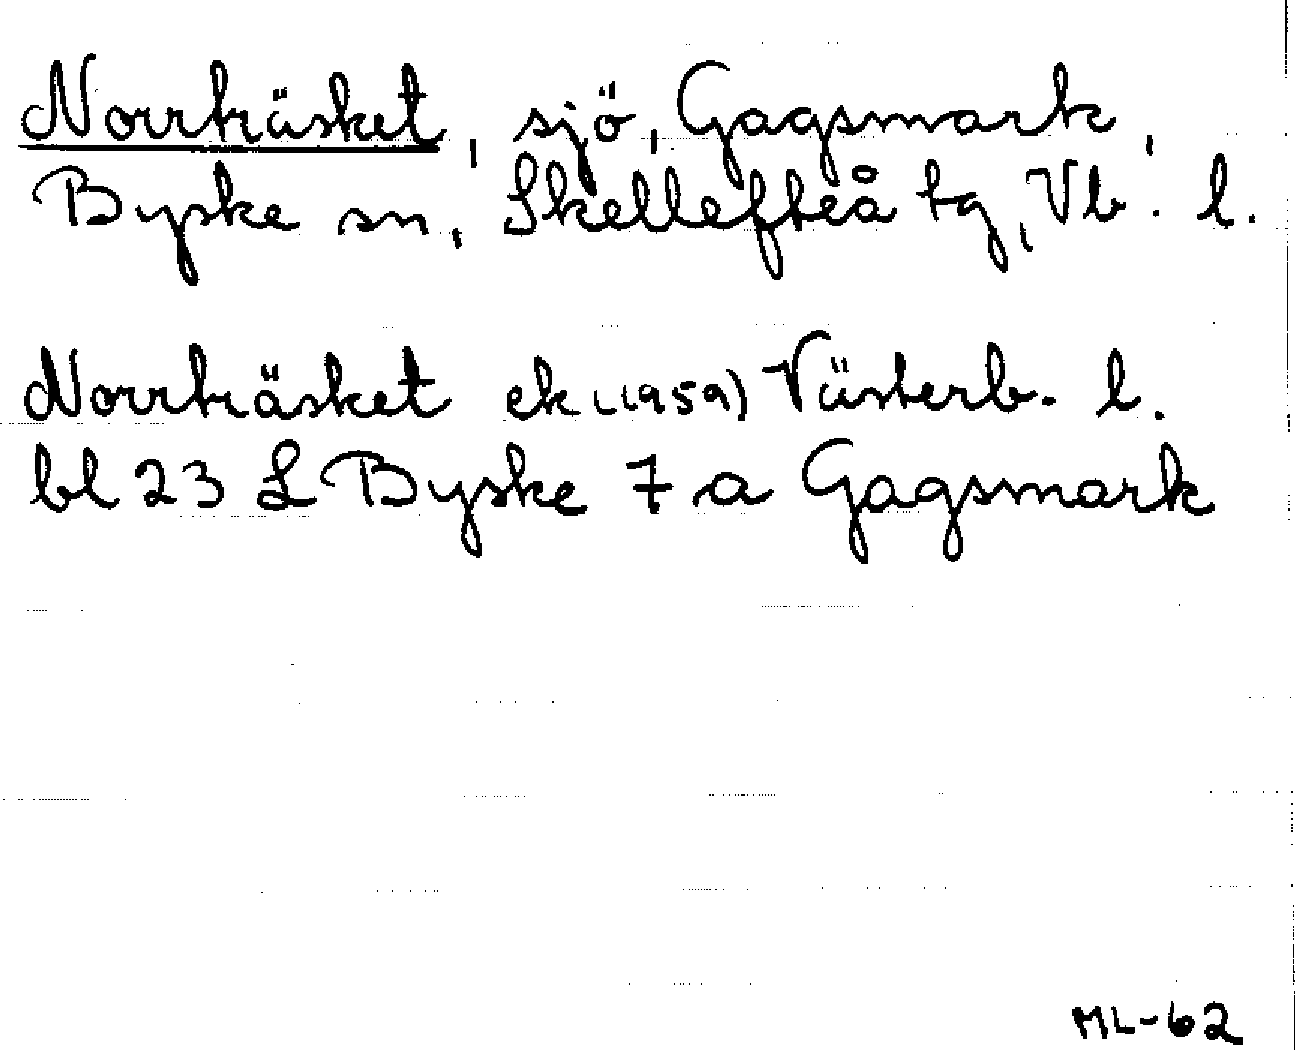 Norrträsket, sjö, Gagsmark,
Byske sn, Skellefteå tg, Vb. l.
Norrträsket ek (1959) Västerb. l.
bl 23 L Byske 7 a Gagsmark
ML-62